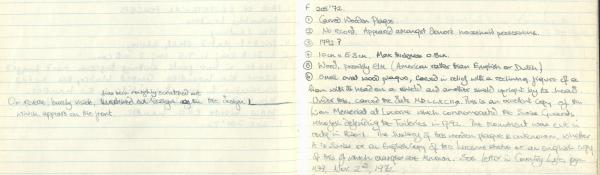 has been roughly scratched out
On reverse, barely visible, the design
which appears on the front.
F 205'72.
① Carved Wooden Plaque
② No record. Appeared amongst Donor's household possessions.
③ 1792?
④ 10cm x 8.3cm. Max thickness 0.8cm.
⑤ Wood, possibly Elm (American rather than English or Dutch)
⑥ Small oval wood plaque, carved in relief with a reclining figure of a
lion with its head on a shield and another shield upright by its head.
Under this, carved the date This is an excellent copy of the
Lion Memorial at Lucerne which commemorates the Swiss Guards
defending the Tuileries in 1792. The monument was cut in
rock in The history of this wooden plaque is unknown, whether
it is Swiss or an English Copy of this Lucerne or an English copy
of this of which examples are known. See letter in Country Life, page
Nov 2nd,